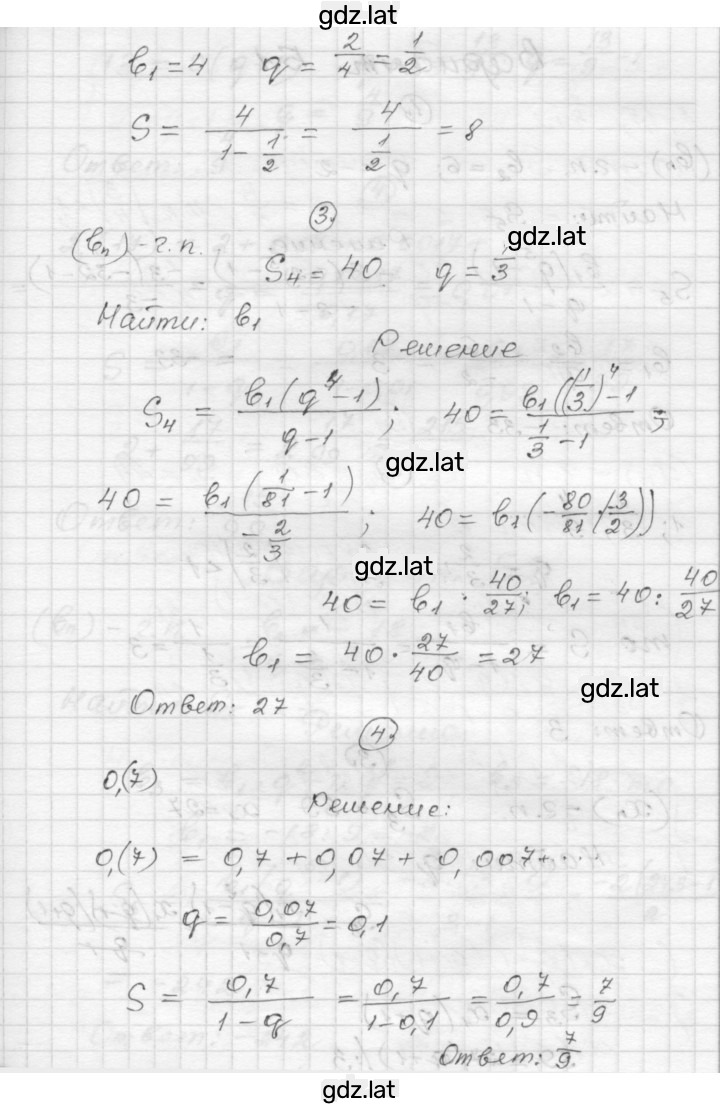 gdz.lat
b₁ = 4 q = 2/4 = 1/2
S = 4/(1 - 1/2) = 4/(1/2) = 8
3.
(bₙ) - г. п.
gdz.lat
S₄ = 40. q = 1/3
Найти: b₁
Решение
S₄ = b₁(q⁴ - 1)/(q - 1); 40 = b₁((1/3)⁴ - 1)/(1/3 - 1);
gdz.lat
40 = b₁(1/81 - 1)/(-2/3); 40 = b₁(-80/81 · (-3/2))
gdz.lat
40 = b₁ · 40/27; b₁ = 40 : 40/27
b₁ = 40 · 27/40 = 27
gdz.lat
Ответ: 27
4.
0,(7)
Решение:
0,(7) = 0,7 + 0,07 + 0,007 + ...
q = 0,07/0,7 = 0,1
S = 0,7/(1 - q) = 0,7/(1 - 0,1) = 0,7/0,9 = 7/9
Ответ: 7/9.
gdz.lat